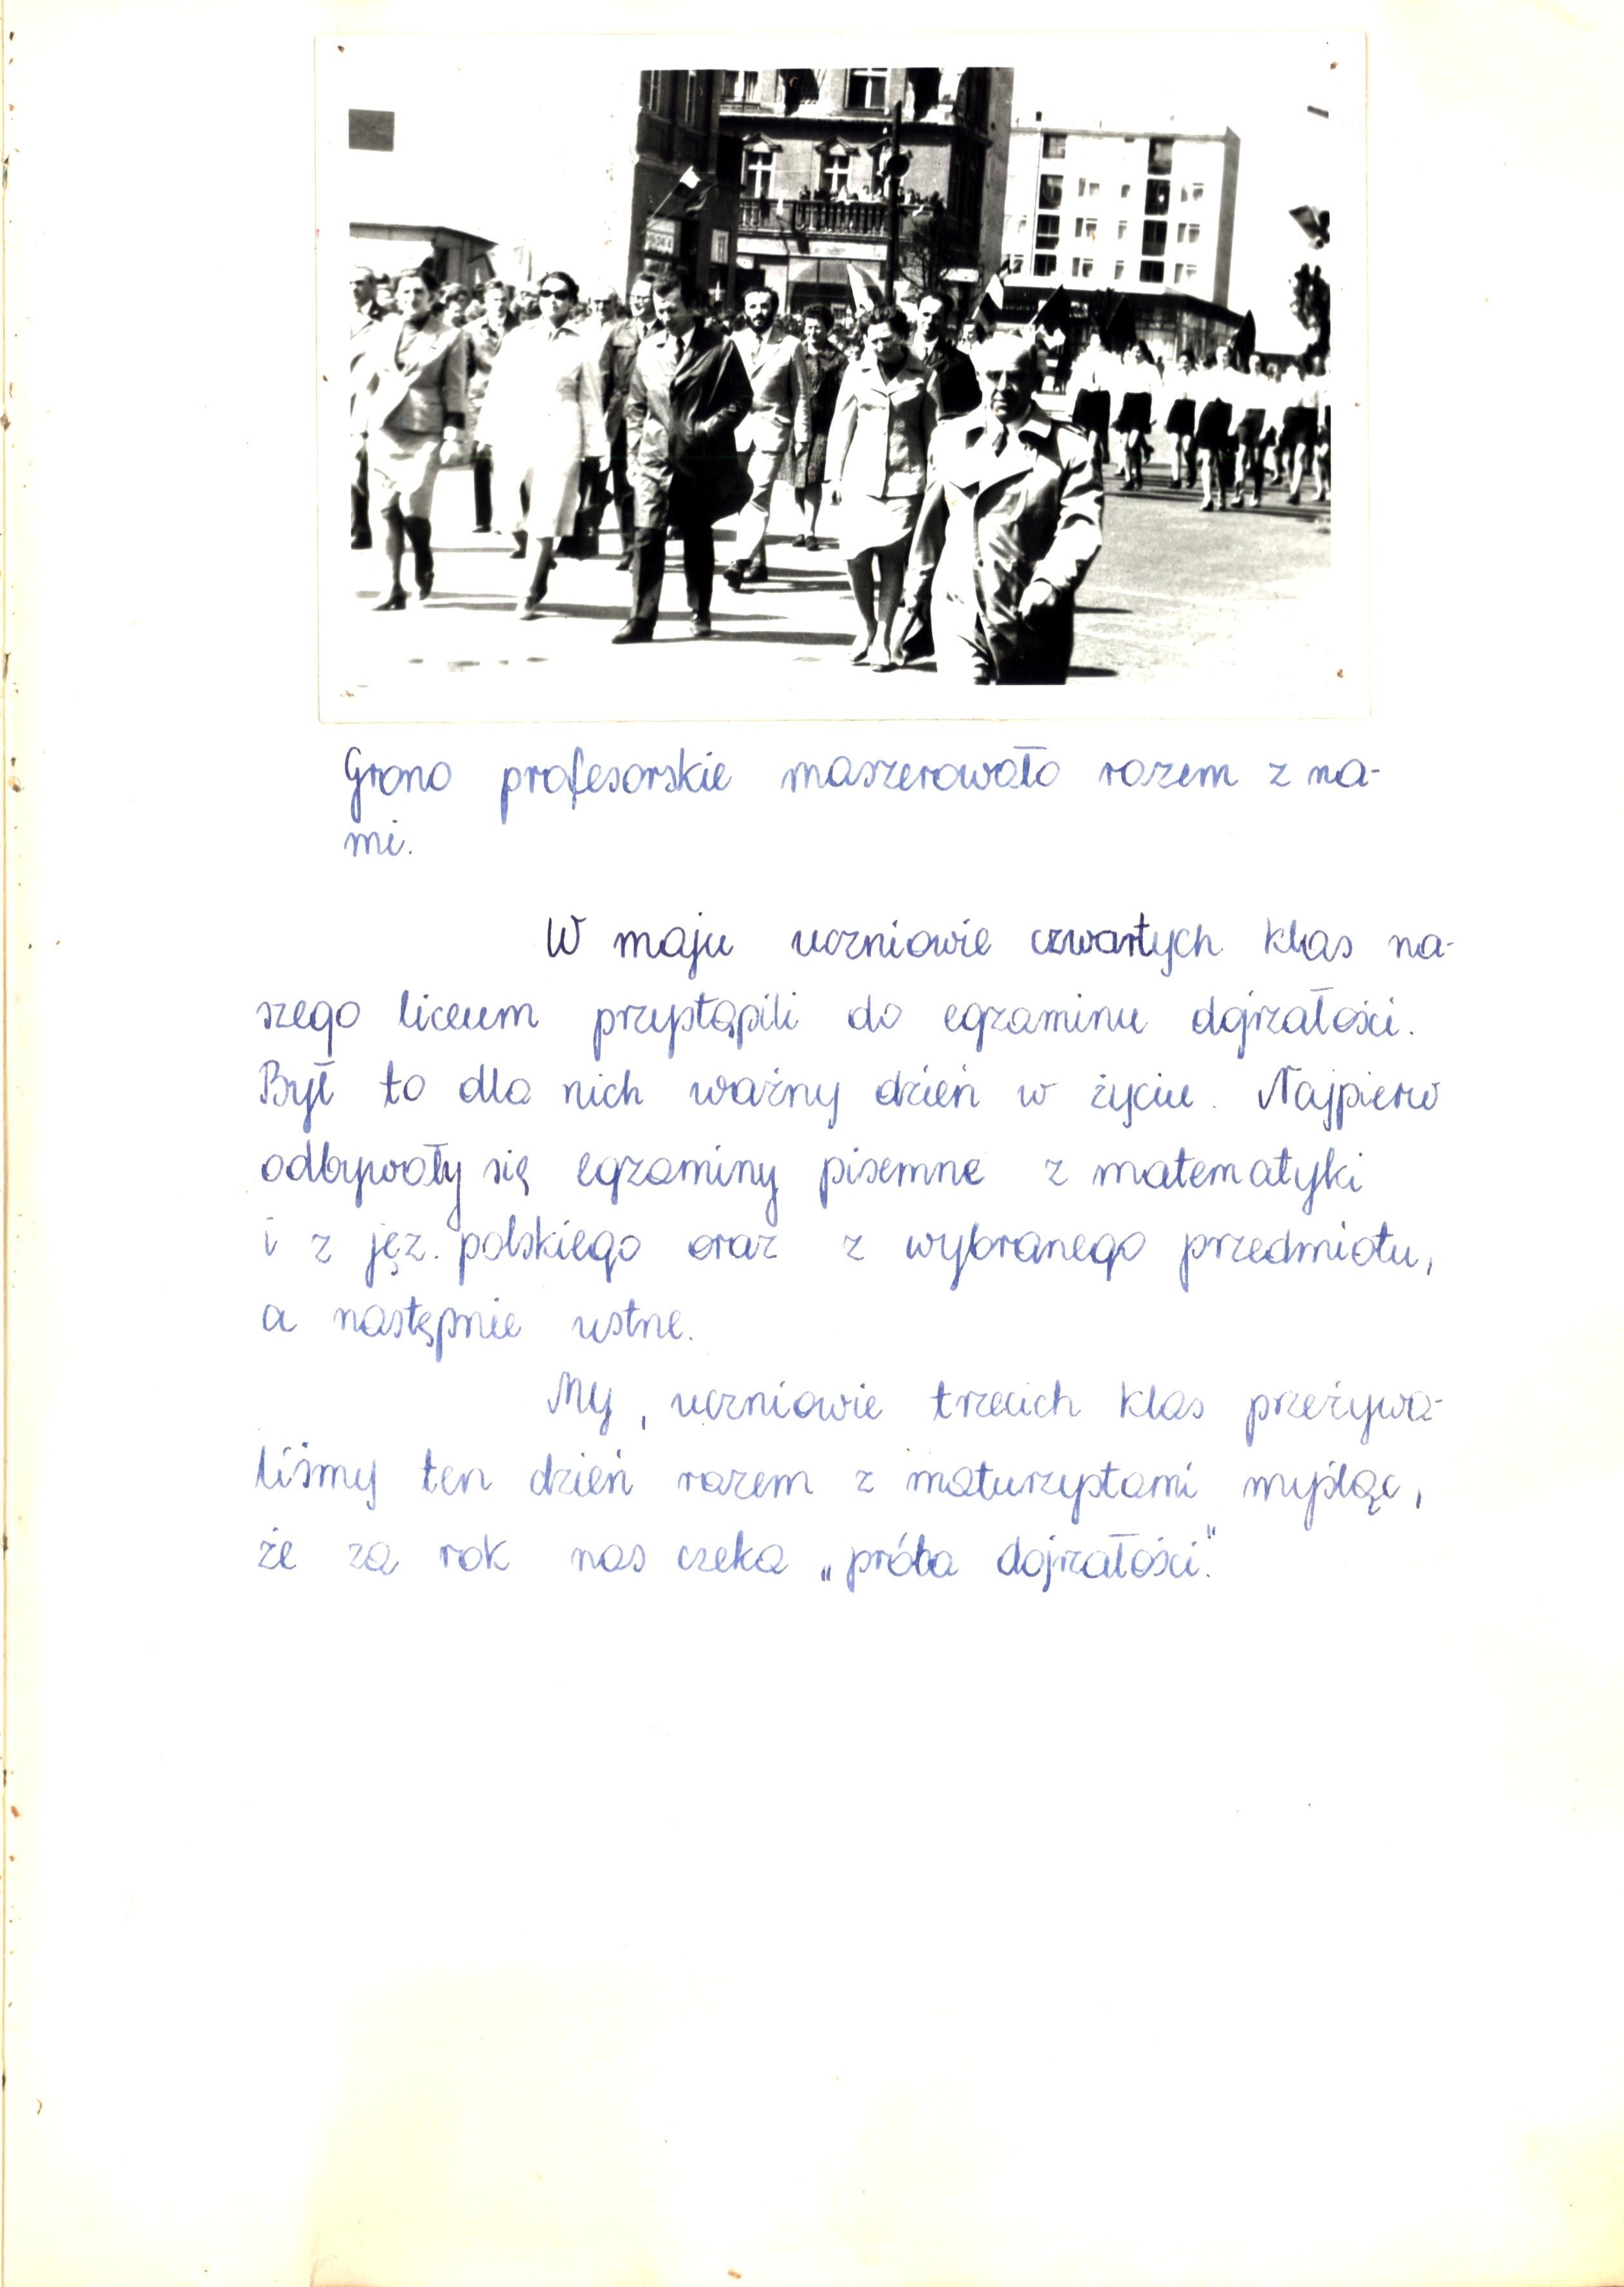 Grono profesorskie maszerowało razem z na-
mi.
W maju uczniowie czwartych klas na-
szego liceum przystąpili do egzaminu dojrzałości.
Był to dla nich ważny dzień w życiu. Najpierw
odbywały się egzaminy pisemne z matematyki
i z jęz. polskiego oraz z wybranego przedmiotu,
a następnie ustne.
My, uczniowie trzecich klas przeżywa-
liśmy ten dzień razem z maturzystami myśląc,
że za rok nas czeka „próba dojrzałości."